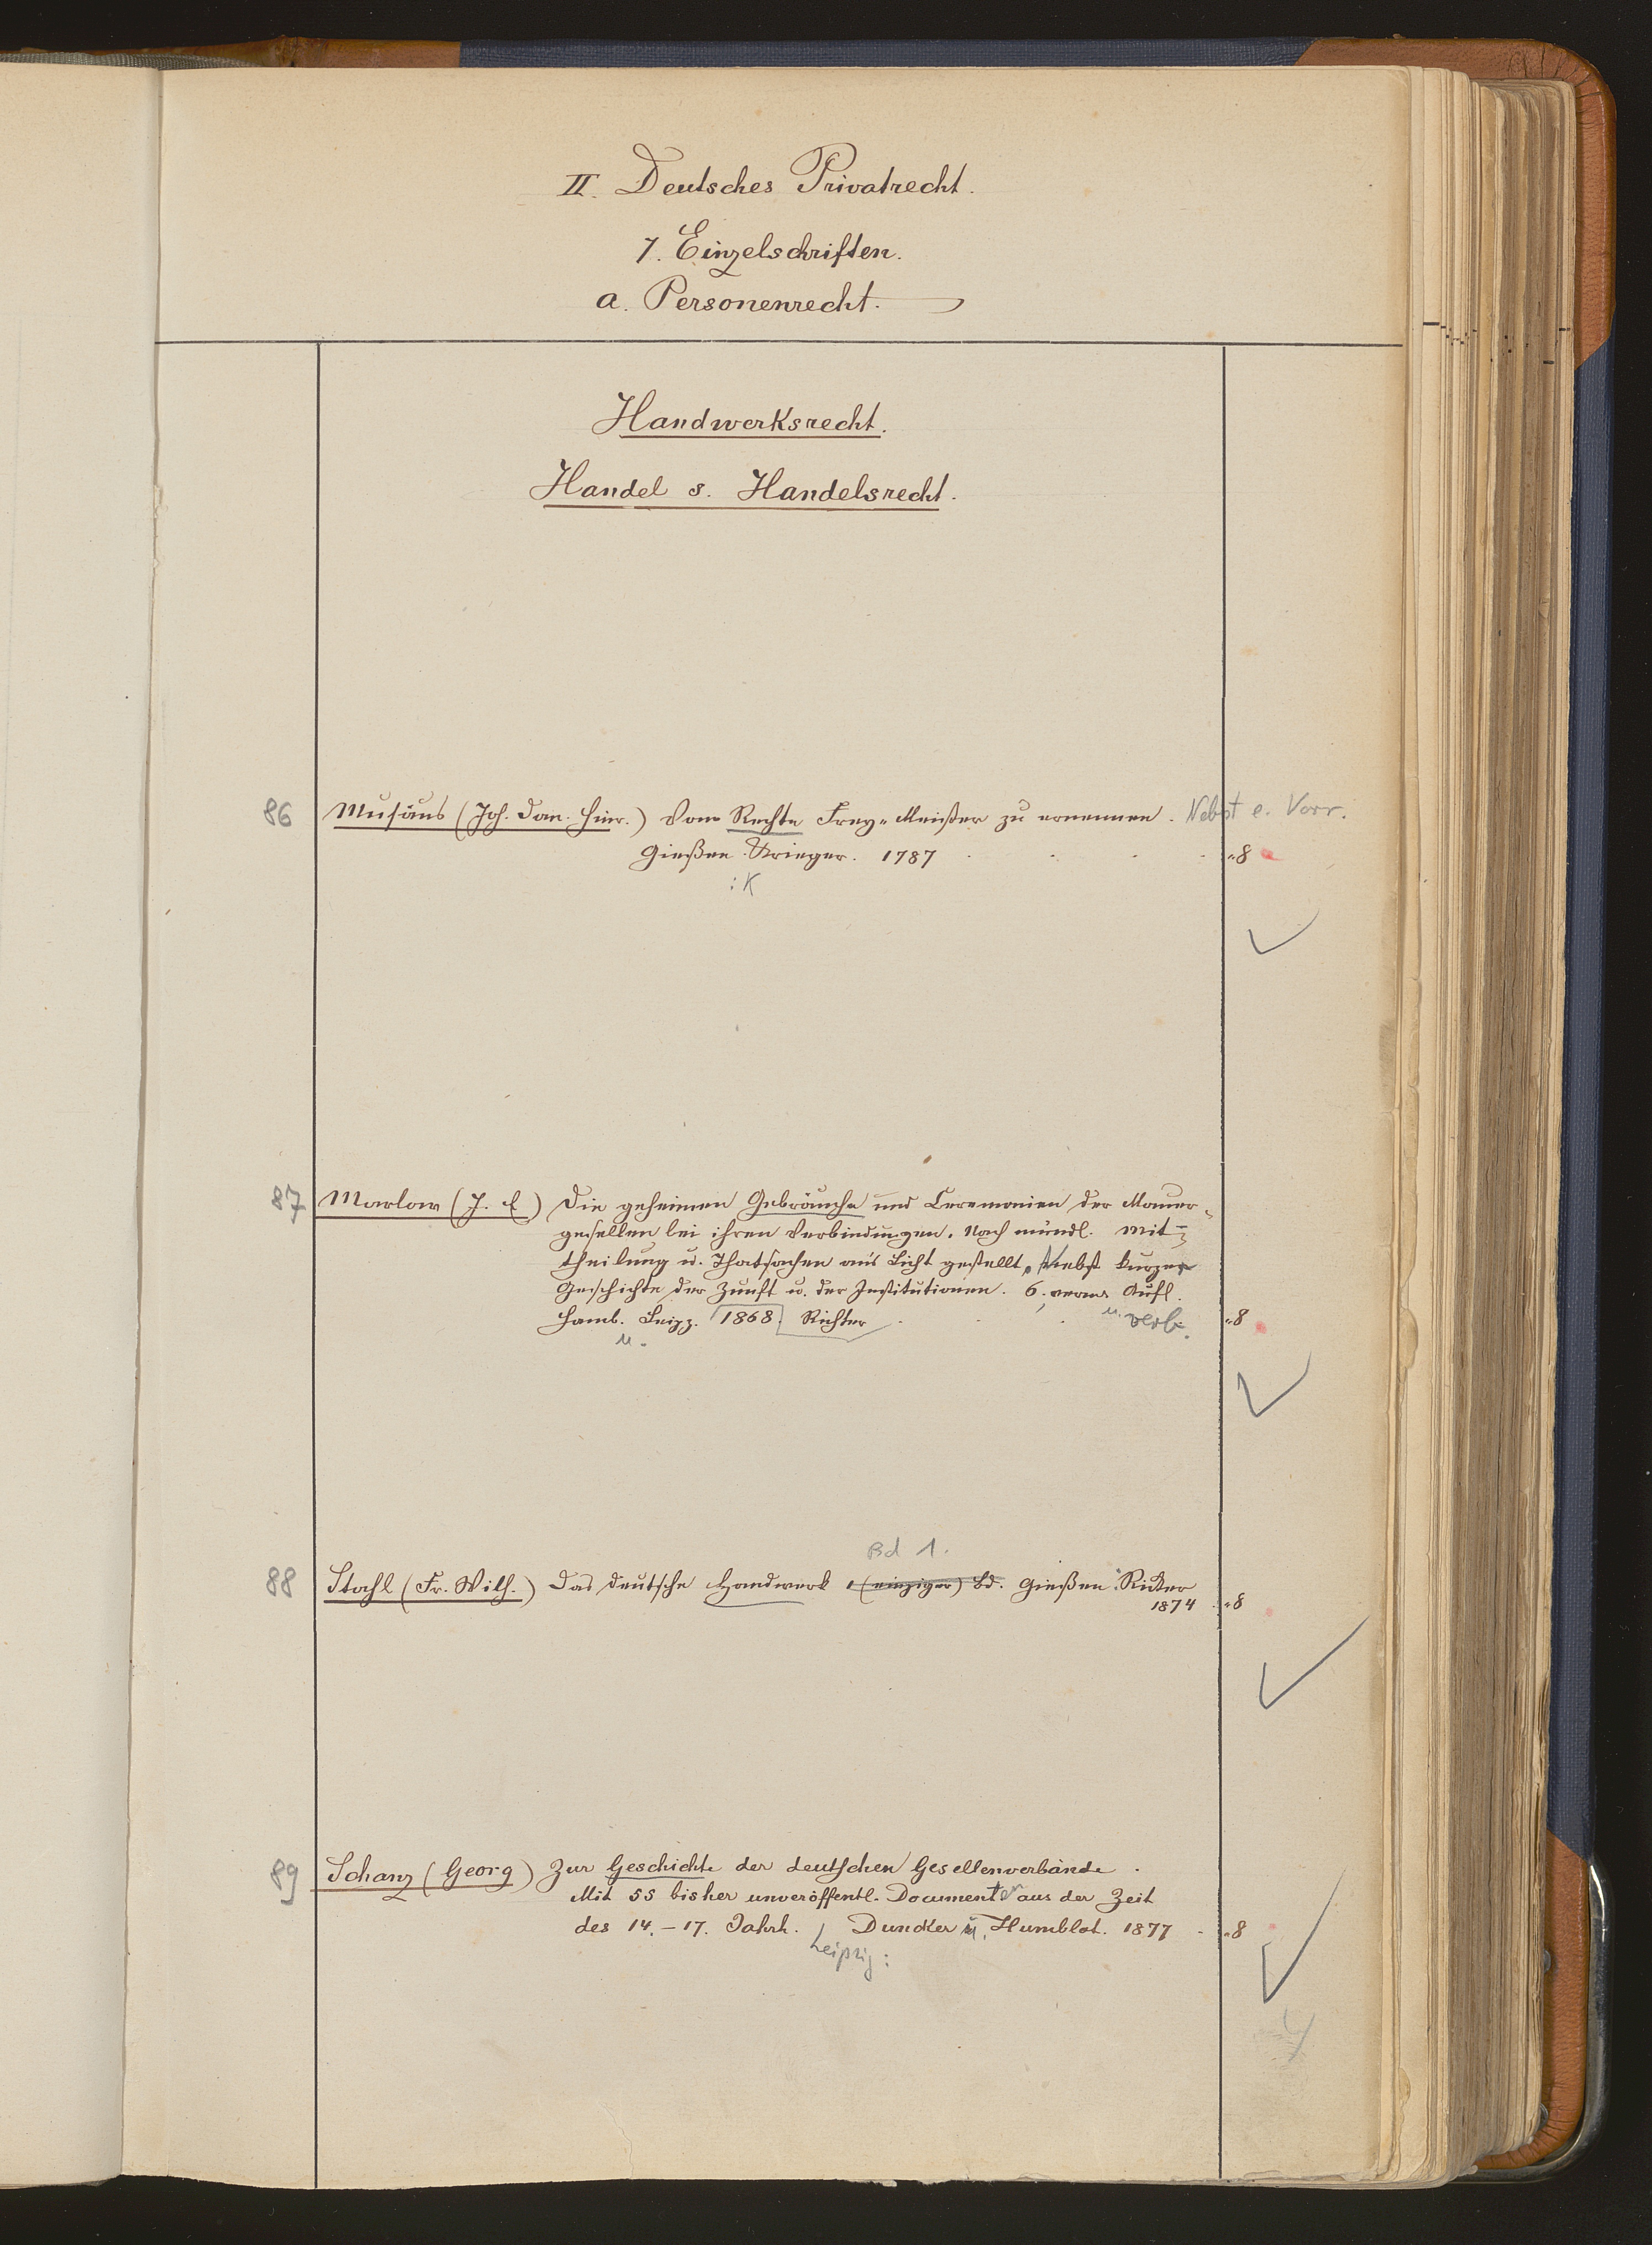 II. Deutsches Privatrecht.
7. Einzelschriften.
a. Personenrecht.
Handwerksrecht.
Handel s. Handelsrecht.
86 Musäus (Joh. Dan. Hinr.) Vom Rechte Frey-Meister zu ernennen. Nebst e. Vorr.
Gießen. Krieger. 1787 8
: K
87 Marlow (J. E) Die geheimen Gebräuche und Ceremonien der Mauer-
gesellen bei ihren Verbindungen. Nach mündl. Mit-
theilung u. Thatsachen ans Licht gestellt, Nebst kurzer
Geschichte der Zunft u. der Institutionen. 6. verm. Aufl.
Hamb. Leipz. 1868 Richter u. verb. 8
u.
Bd 1.
88 Stahl (Fr. Wilh.) Das deutsche Handwerk 1 (einziger) Bd. Gießen: Ricker
1874 8
89 Schanz (Georg) Zur Geschichte der deutschen Gesellenverbände.
Mit 55 bisher unveröffentl. Documenten aus der Zeit
des 14.-17. Jahrh. Duncker u. Humblot. 1877 8
Leipzig: